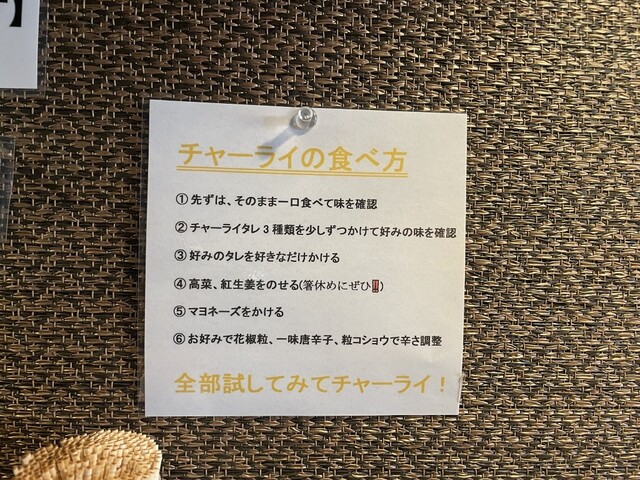 チャーライの食べ方
①先ずは、そのまま一口食べて味を確認
②チャーライタレ3種類を少しずつかけて好みの味を確認
③好みのタレを好きなだけかける
④高菜、紅生姜をのせる(箸休めにぜひ‼)
⑤マヨネーズをかける
⑥お好みで花椒粒、一味唐辛子、粒コショウで辛さ調整
全部試してみてチャーライ！